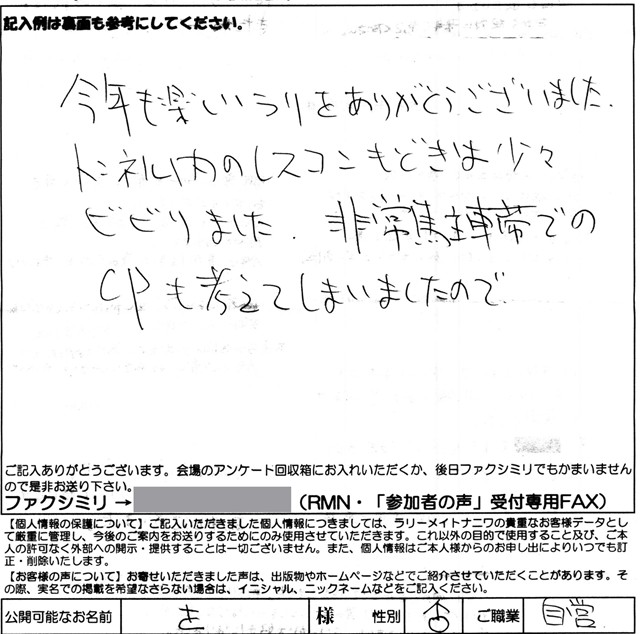 記入例は裏面も参考にしてください。
今年も楽しいラリをありがとうございました.
トンネル内のレスコンもどきは少々
ビビりました. 非常駐車帯での
CPも考えてしまいましたので
ご記入ありがとうございます。会場のアンケート回収箱にお入れいただくか、後日ファクシミリでもかまいません
ので是非お送り下さい。
ファクシミリ → （RMN・「参加者の声」受付専用FAX）
【個人情報の保護について】ご記入いただきました個人情報につきましては、ラリーメイトナニワの貴重なお客様データとし
て厳重に管理し、今後のご案内をお送りするためにのみ使用させていただきます。これ以外の目的で使用すること及び、ご本
人の許可なく外部への開示・提供することは一切ございません。また、個人情報はご本人様からのお申し出によりいつでも訂
正・削除いたします。
【お客様の声について】お寄せいただきました声は、出版物やホームページなどでご紹介させていただくことがあります。そ
の際、実名での掲載を希望なさらない場合は、イニシャル、ニックネームなどをご記入ください。
公開可能なお名前 様 性別 否 ご職業 自営